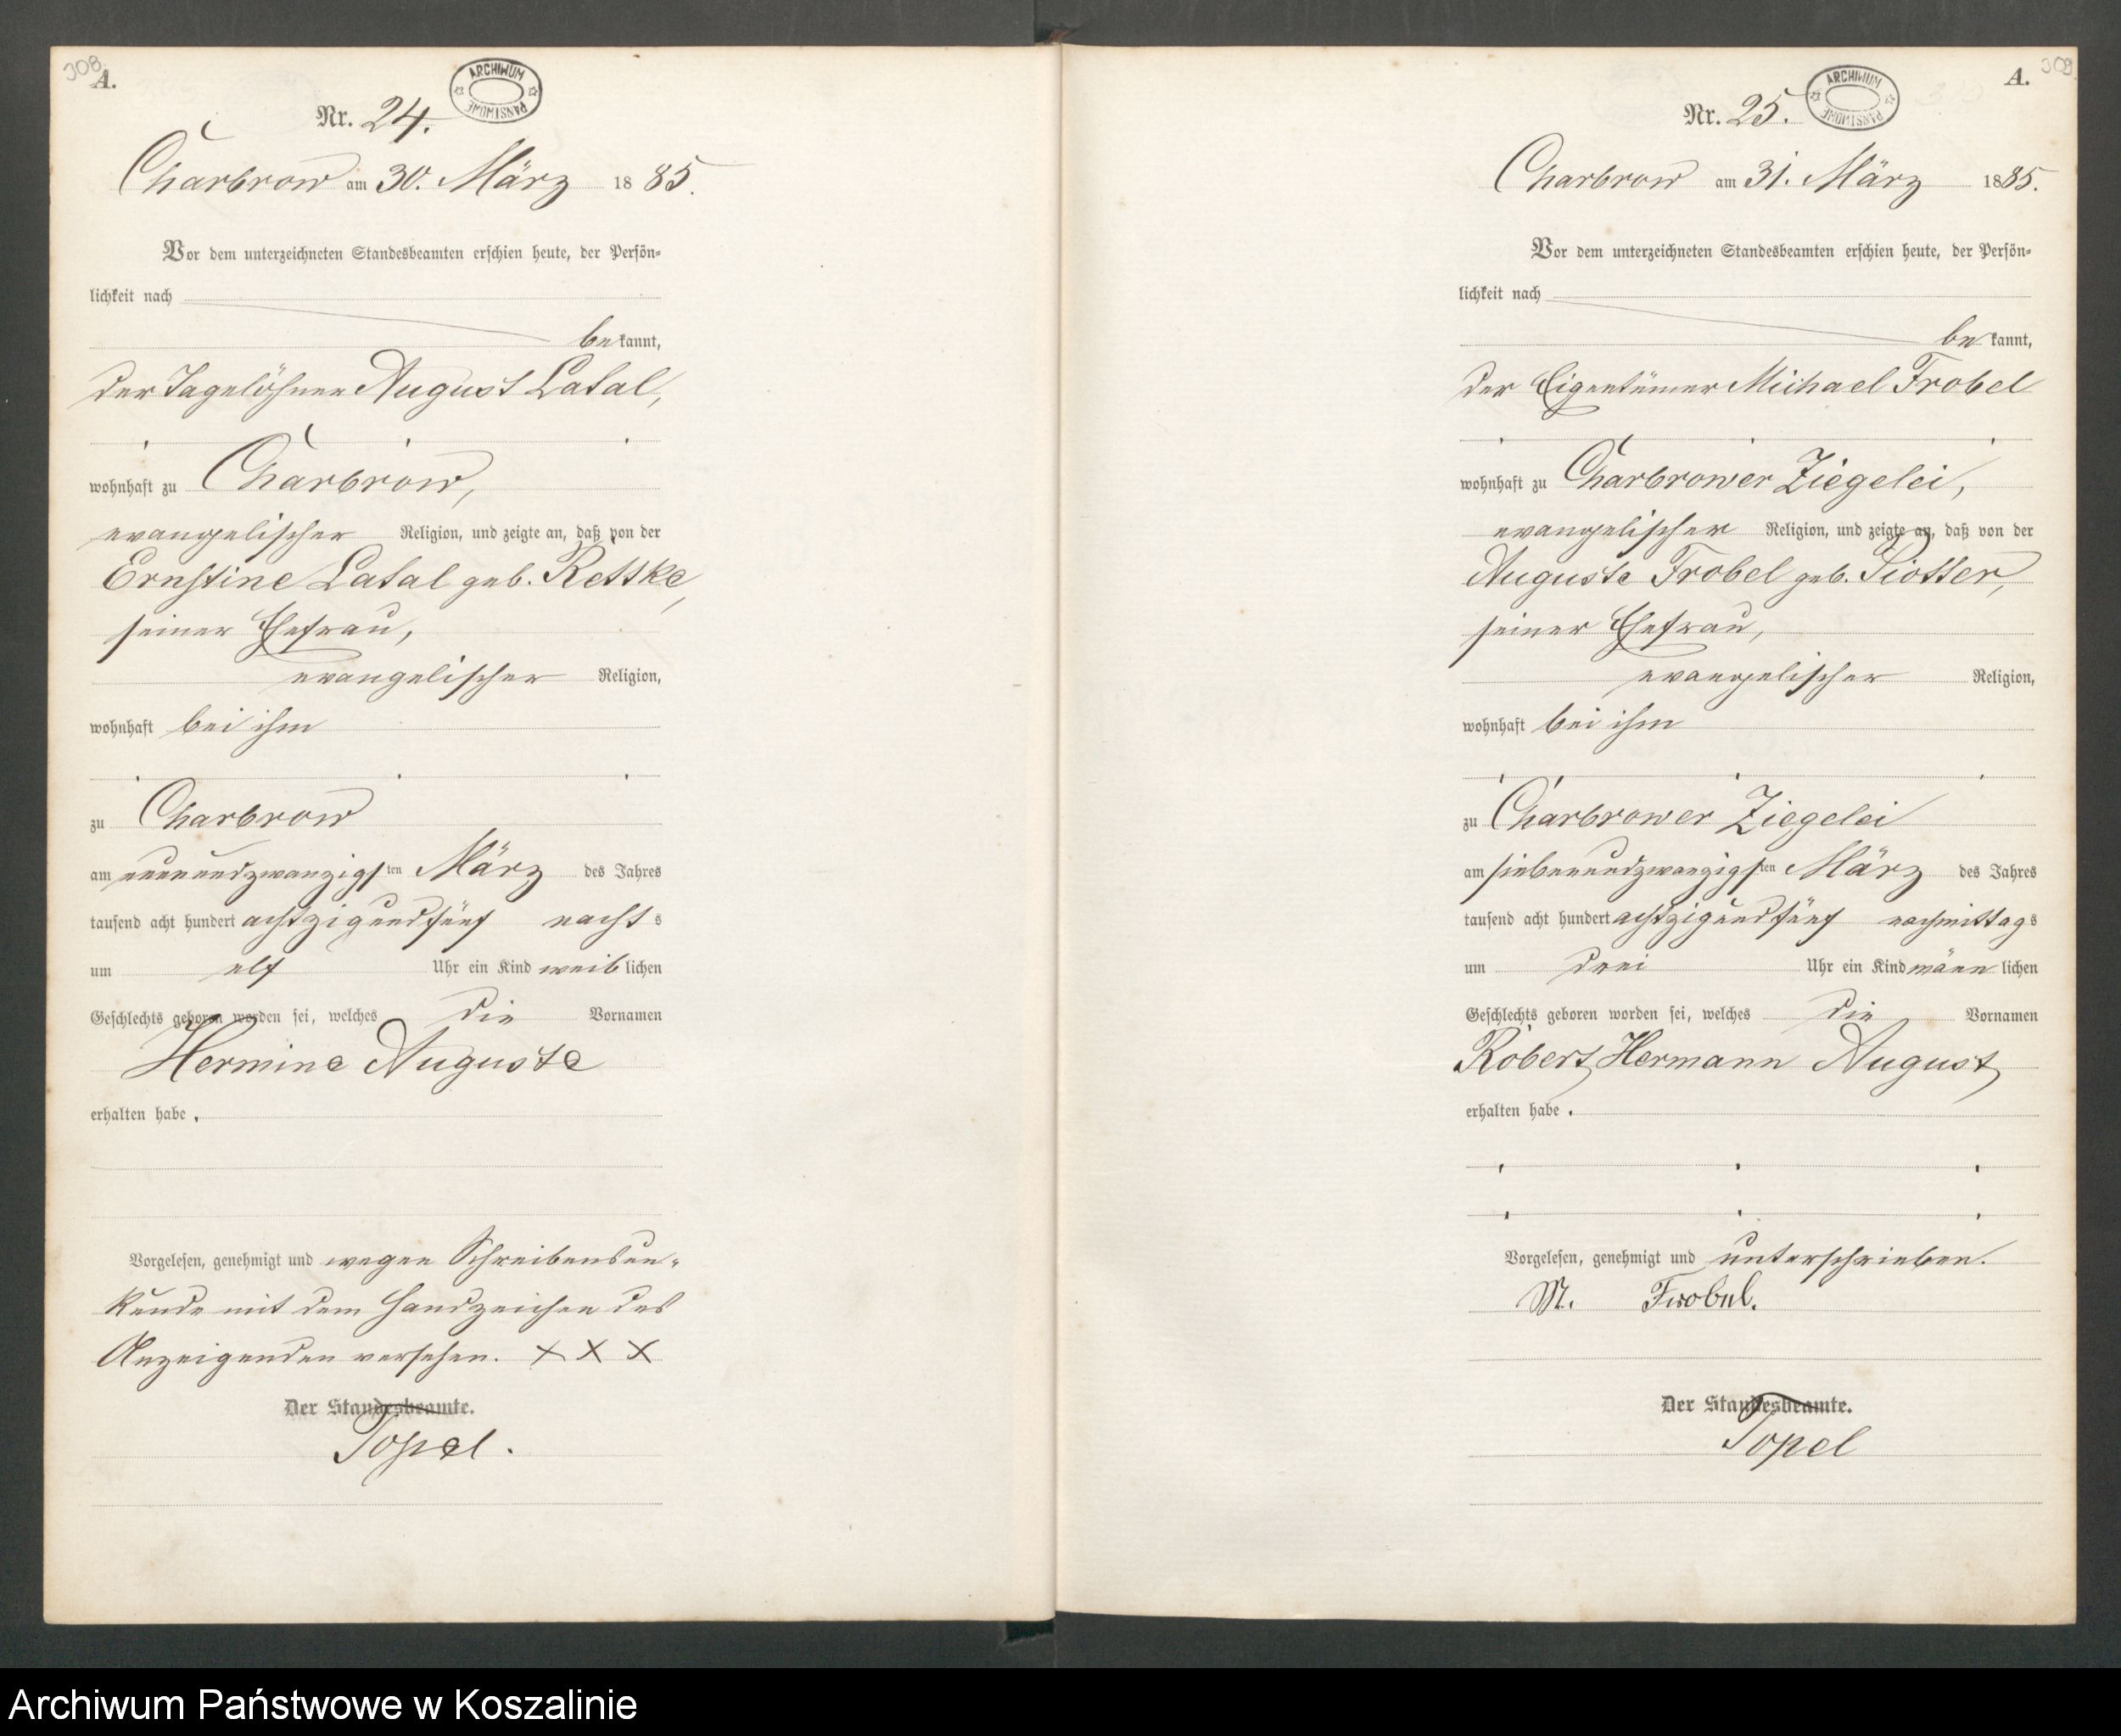 308
A.
ARCHIWUM PAŃSTWOWE
Nr. 24.
Charbrow am 30. März 1885.
Vor dem unterzeichneten Standesbeamten erschien heute, der Persön-
lichkeit nach
bekannt,
der Tagelöhner August Latal,
wohnhaft zu Charbrow,
evangelischer Religion, und zeigte an, daß von der
Ernstine Latal geb. Rettke,
seiner Ehefrau,
evangelischer Religion,
wohnhaft bei ihm
zu Charbrow
am neunundzwanzigsten März des Jahres
tausend acht hundert achtzigundfünf nachts
um elf Uhr ein Kind weiblichen
Geschlechts geboren worden sei, welches die Vornamen
Hermine Auguste
erhalten habe.
Vorgelesen, genehmigt und wegen Schreibensun-
kunde mit dem Handzeichen des
Anzeigenden versehen. X X X
Der Standesbeamte.
Topel.
309
A.
ARCHIWUM PAŃSTWOWE
Nr. 25.
Charbrow am 31. März 1885.
Vor dem unterzeichneten Standesbeamten erschien heute, der Persön-
lichkeit nach
bekannt,
der Eigentümer Michael Frobel
wohnhaft zu Charbrower Ziegelei,
evangelischer Religion, und zeigte an, daß von der
Auguste Frobel geb. Piotter,
seiner Ehefrau,
evangelischer Religion,
wohnhaft bei ihm
zu Charbrower Ziegelei
am siebenundzwanzigsten März des Jahres
tausend acht hundert achtzigundfünf nachmittags
um drei Uhr ein Kind männlichen
Geschlechts geboren worden sei, welches die Vornamen
Robert Hermann August
erhalten habe.
Vorgelesen, genehmigt und unterschrieben.
M. Frobel.
Der Standesbeamte.
Topel
Archiwum Państwowe w Koszalinie